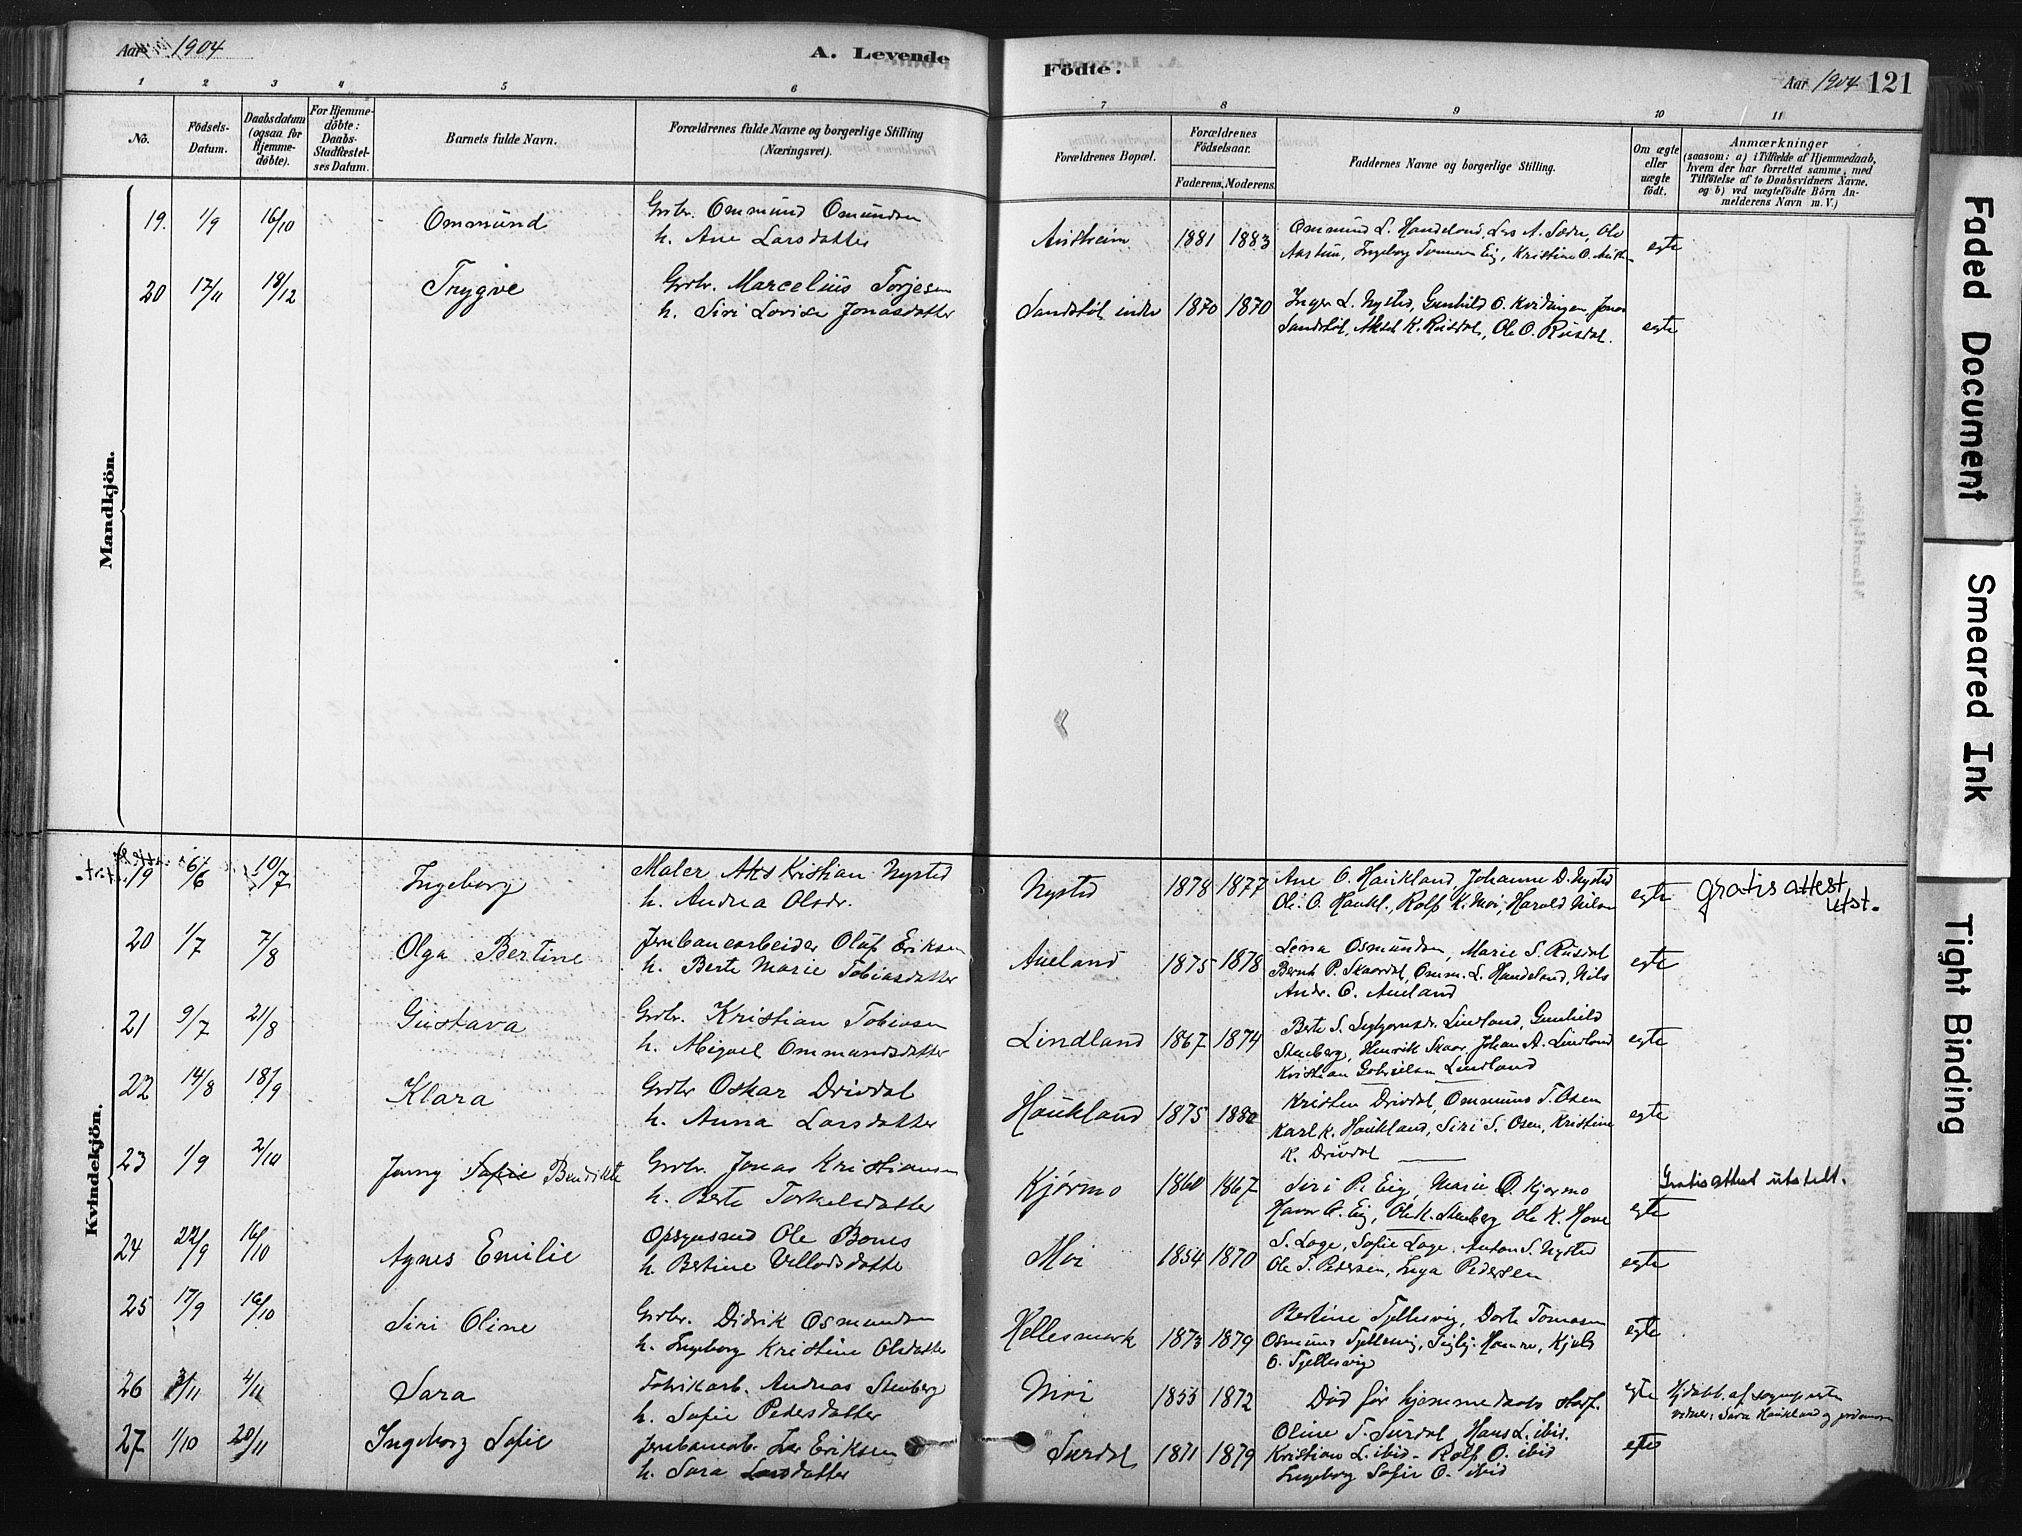 Aar 1904
A. Levende
Födte.
Aar 1904 121
1 2 3 4 5 6 7 8 9 10 11
No.
Födsels-
Datum.
Daabsdatum
(ogsaa for
Hjemme-
döbte).
For Hjemme-
döbte:
Daabs-
Stadfæstel-
ses Datum.
Barnets fulde Navn.
Forældrenes fulde Navne og borgerlige Stilling
(Næringsvei).
Forældrenes Bopæl.
Forældrenes
Födselsaar.
Faderens. Moderens.
Faddernes Navne og borgerlige Stilling.
Om ægte
eller
uægte
födt.
Anmærkninger
(saasom: a) i Tilfælde af Hjemmedaab,
hvem der har forrettet samme, med
Tilföielse af to Daabsvidners Navne,
og b) ved uægtefödte Börn An-
melderens Navn m. V.)
Mandkjön.
19. 1/9 16/10 Ommund
Grbr. Ommund Omundsen
h. Ane Larsdatter
1881 1883
Ommund L. Handeland, Lars A. Sædre, Ole
egte
20 17/11 18/12 Trygve
Grbr. Marcelius Torjesen
h. Siri Lovise Jonasdatter
Sandstöl indre 1870 1870
Inger L. Nysted, Gunhild O. Kvidingen Jonas
Sandstöl, Aksel K. Rusdal, Ole O. Rusdal.
egte
Kvindekjön.
19 6/6 10/7 Ingeborg
Maler Aks Kristian Nysted
h. Andrea Olsdr.
Nysted 1878 1877
Ane O. Haukland, Johanne D. Nysted
Ole O. Haukl., Rolf K. Moi, Harald Nilsen
egte
Gratis attest
utst.
20 1/7 7/8 Olga Bertine
Jernbanearbeider Oluf Eriksen
h. Berte Marie Tobiasdatter
Aueland 1875 1878
Lena Osmundsen, Marie S. Rusdal
Bernh P. Skaardal, Omm. L. Handeland, Nils
Andr. O. Aueland
egte
21 9/7 21/8 Gustava
Grbr. Kristian Tobiasen
h. Abigael Ommundsdatter
Lindland 1867 1874
Berte S. Lindland, Gunhild
Stenberg, Henrik Skaar, Johan A. Lindland
Kristian Gabrielsen Lindland
egte
22 14/8 18/9 Klara
Grbr Oskar Drivdal
h. Anna Larsdatter
Haukland 1875 1880
Kristen Drivdal, Ommund T. Osen
Karl K. Haukland, Siri S. Osen, Kristine
K. Drivdal
egte
23 1/9 2/10 Jenny Sofie Bendikte
Grbr. Jonas Kristiansen
h. Berte Torkelsdatter
Kjørmo 1860 1867
Siri P. Eig, Marie O. Kjørmo
Havor O. Eig, Ole K. Stenberg Ole K. Hove
egte
Gratis attest utstelt.
24 22/9 16/10 Agnes Emilie
Opsynsmd Ole Bones
h. Bertine
Moi 1854 1870
S. Lage, Sofie Lage, Anton S. Nysted
Ole T. Pedersen, Inga Pedersen
egte
25 17/9 16/10 Siri Oline
Grbr. Didrik Osmundsen
h. Ingeborg Kristine Olsdatter
Hellesmark 1873 1879
Bertine Tjellesvig, Dorte Tomasen
Osmund Tjellesvig, Sigbj. Homme, Kjels
O. Tjellesvig
egte
26 3/11 4/11 Sara
Fabrikarb. Andreas Stenberg
h. Sofie Pedersdatter
Moi 1855 1872
Død før hjemmedaabs stadf.
egte
Hjdøbt. af sogneprsten
vidner: Sara Haukland og jordmoren
27 1/10 20/11 Ingeborg Sofie
Jernbanearb. Lar Eriksen
h. Sara Larsdatter
Surdal 1871 1879
Oline T. Surdal, Hans L. ibid.
Kristians L. ibid - Rolf O. ibid
Ingeborg Sofie O. ibid
egte
Faded Document
Smeared Ink
Tight Binding